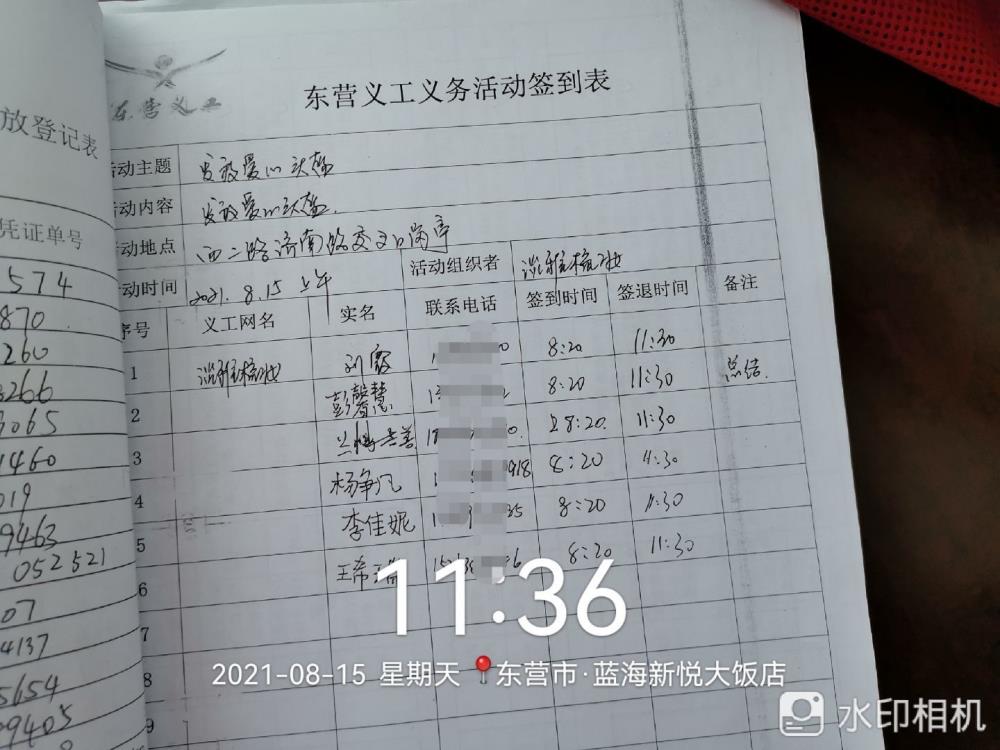 东营义工
东营义工义务活动签到表
放登记表
活动主题 发放爱心头盔
活动内容 发放爱心头盔
凭证单号
活动地点 西二路济南路交叉口岗亭
活动时间 2021.8.15 上午 活动组织者
序号 义工网名 实名 联系电话 签到时间 签退时间 备注
574
870
260
3266
3065
1460
019
9463
052521
07
4137
5654
09405
1 8:20 11:30 总结
2 彭馨慧 8:20 11:30
3 8:20 11:30
4 杨争凡 918 8:20 11:30
5 李佳妮 35 8:20 11:30
6 8:20 11:30
7
8
9
11:36
2021-08-15 星期天 东营市·蓝海新悦大饭店
水印相机